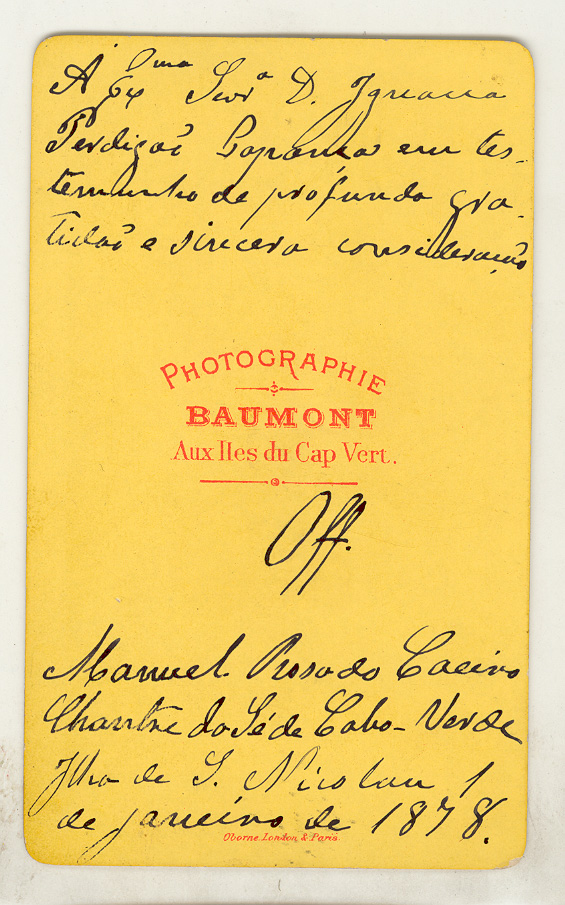 Á Exma Snrª D. Ignacia
Perdigaõ Laprança em tes-
temunho de profunda gra-
tidaõ e sincera consideraçaõ
PHOTOGRAPHIE
BAUMONT
Aux Iles du Cap Vert.
Off.
Manuel Rosado Caeiro
Chantre da Sé de Cabo-Verde
Ilha de S. Nicolau 1
de janeiro de 1878.
Oborne London & Paris.